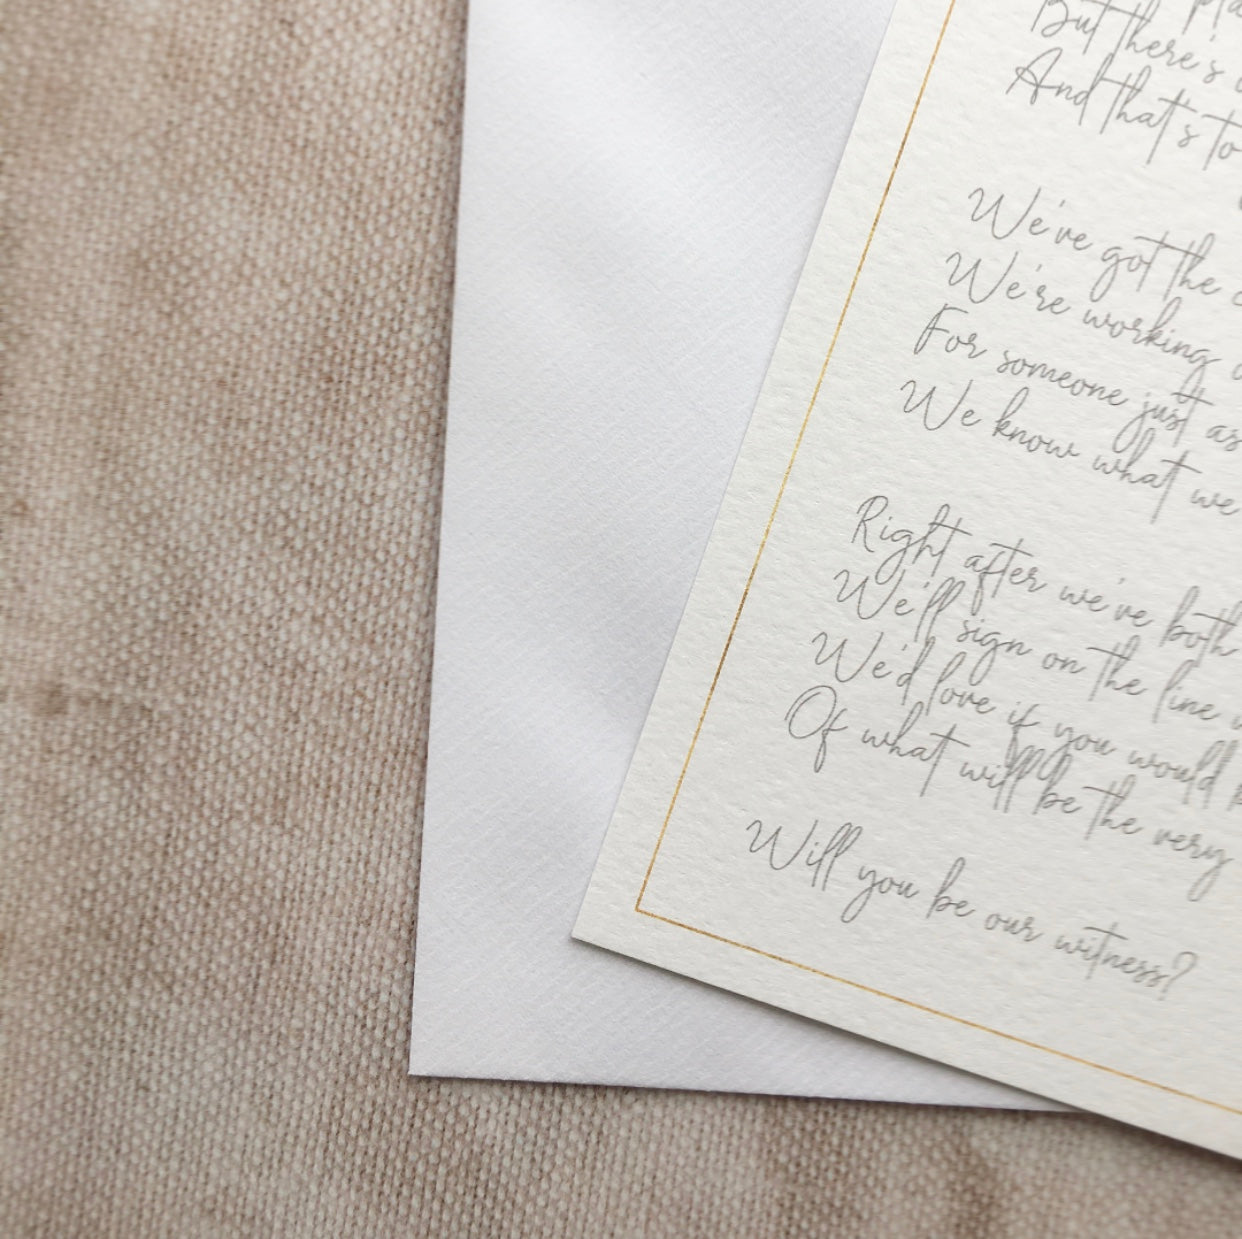 But there's
And that's to
We've got the
We're working
For someone just as
We know what we
Right after we've both
We'll sign on the line
We'd love if you would
Of what will be the very
Will you be our witness?